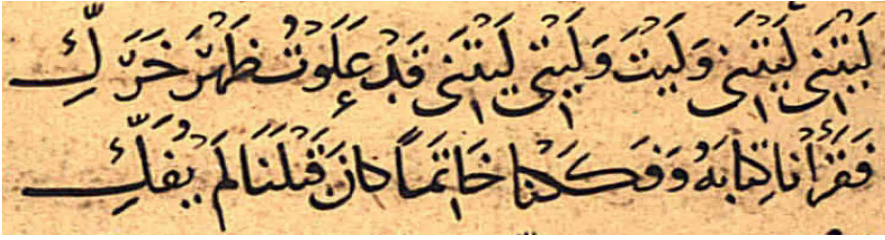 لَيْتَنَى لَيْتَنَى وَلَيْتَ وَلَيْتَنِى لَيْتَنَى قَدْ عَلَوْتُ ظَهْرَ خَرَّ لِّكِ
فَقَرَأْنَا كِتَابَهُ وَفَكَكْنَا خَاتَمًا كَانَ قَبْلَنَا لَمْ يُفَكِّ